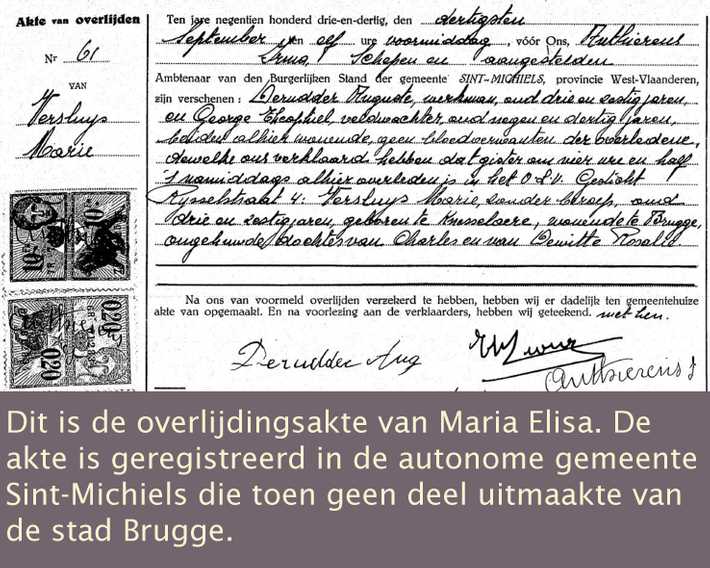 Akte van overlijden
Nr 61
VAN
Versluys
Marie
Ten jare negentien honderd drie-en-dertig, den dertigsten
September ten elf ure voormiddag, vóór Ons, Authierens
Irma, Schepen en aangestelden
Ambtenaar van den Burgerlijken Stand der gemeente SINT-MICHIELS, provincie West-Vlaanderen,
zijn verschenen: Derudder Auguste, werkman, oud drie en zestig jaren,
en George Theophiel, veldwachter, oud negen en dertig jaren,
beiden alhier wonende, geen bloedverwanten der overledene,
dewelke ons verklaard hebben dat gister om vier ure en half
's namiddags alhier overleden is in het O.L.V. Gesticht
Rysselstraat 4: Versluys Marie, zonder beroep, oud
drie en zestig jaren, geboren te Knesselaere, wonende te Brugge,
ongehuwde, dochter van Charles en van Dewitte Rosalie
Na ons van voormeld overlijden verzekerd te hebben, hebben wij er dadelijk ten gemeentehuize
akte van opgemaakt. En na voorlezing aan de verklaarders, hebben wij geteekend. met hen.
Derudder Aug
Authierens I
10c
020
020
Dit is de overlijdingsakte van Maria Elisa. De
akte is geregistreerd in de autonome gemeente
Sint-Michiels die toen geen deel uitmaakte van
de stad Brugge.